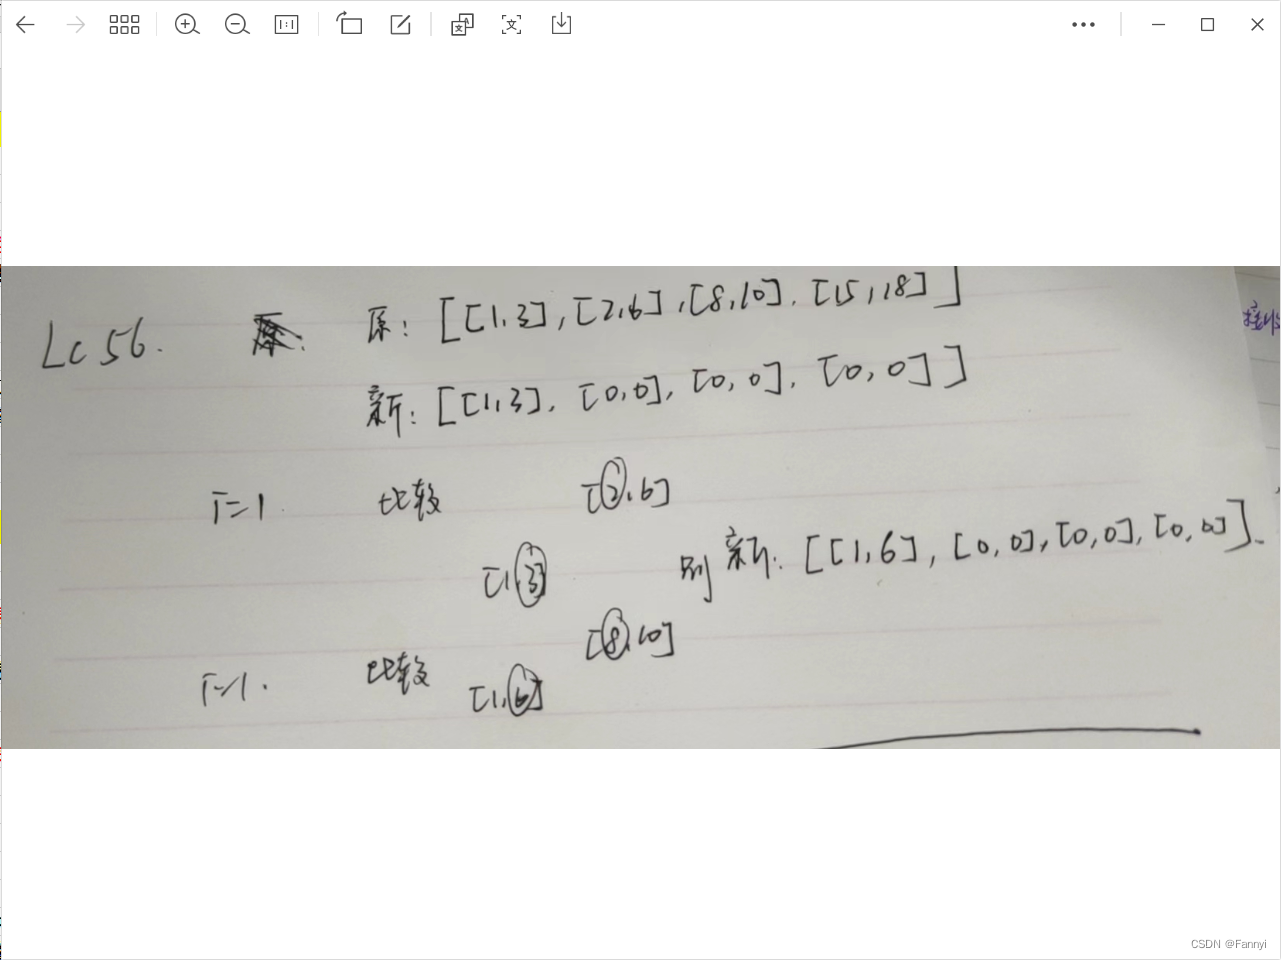 LC 56. 原: [[1,3],[2,6],[8,10],[15,18]]
新: [[1,3],[0,0],[0,0],[0,0]]
I=1 比较 [2,6]
[1,3] 则 新: [[1,6],[0,0],[0,0],[0,0]].
[8,10]
I=1. 比较 [1,6]
CSDN @Fannyi